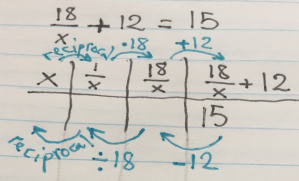 18/x + 12 = 15
reciprocal ·18 +12
x | 1/x | 18/x | 18/x + 12
15
reciprocal ÷18 -12